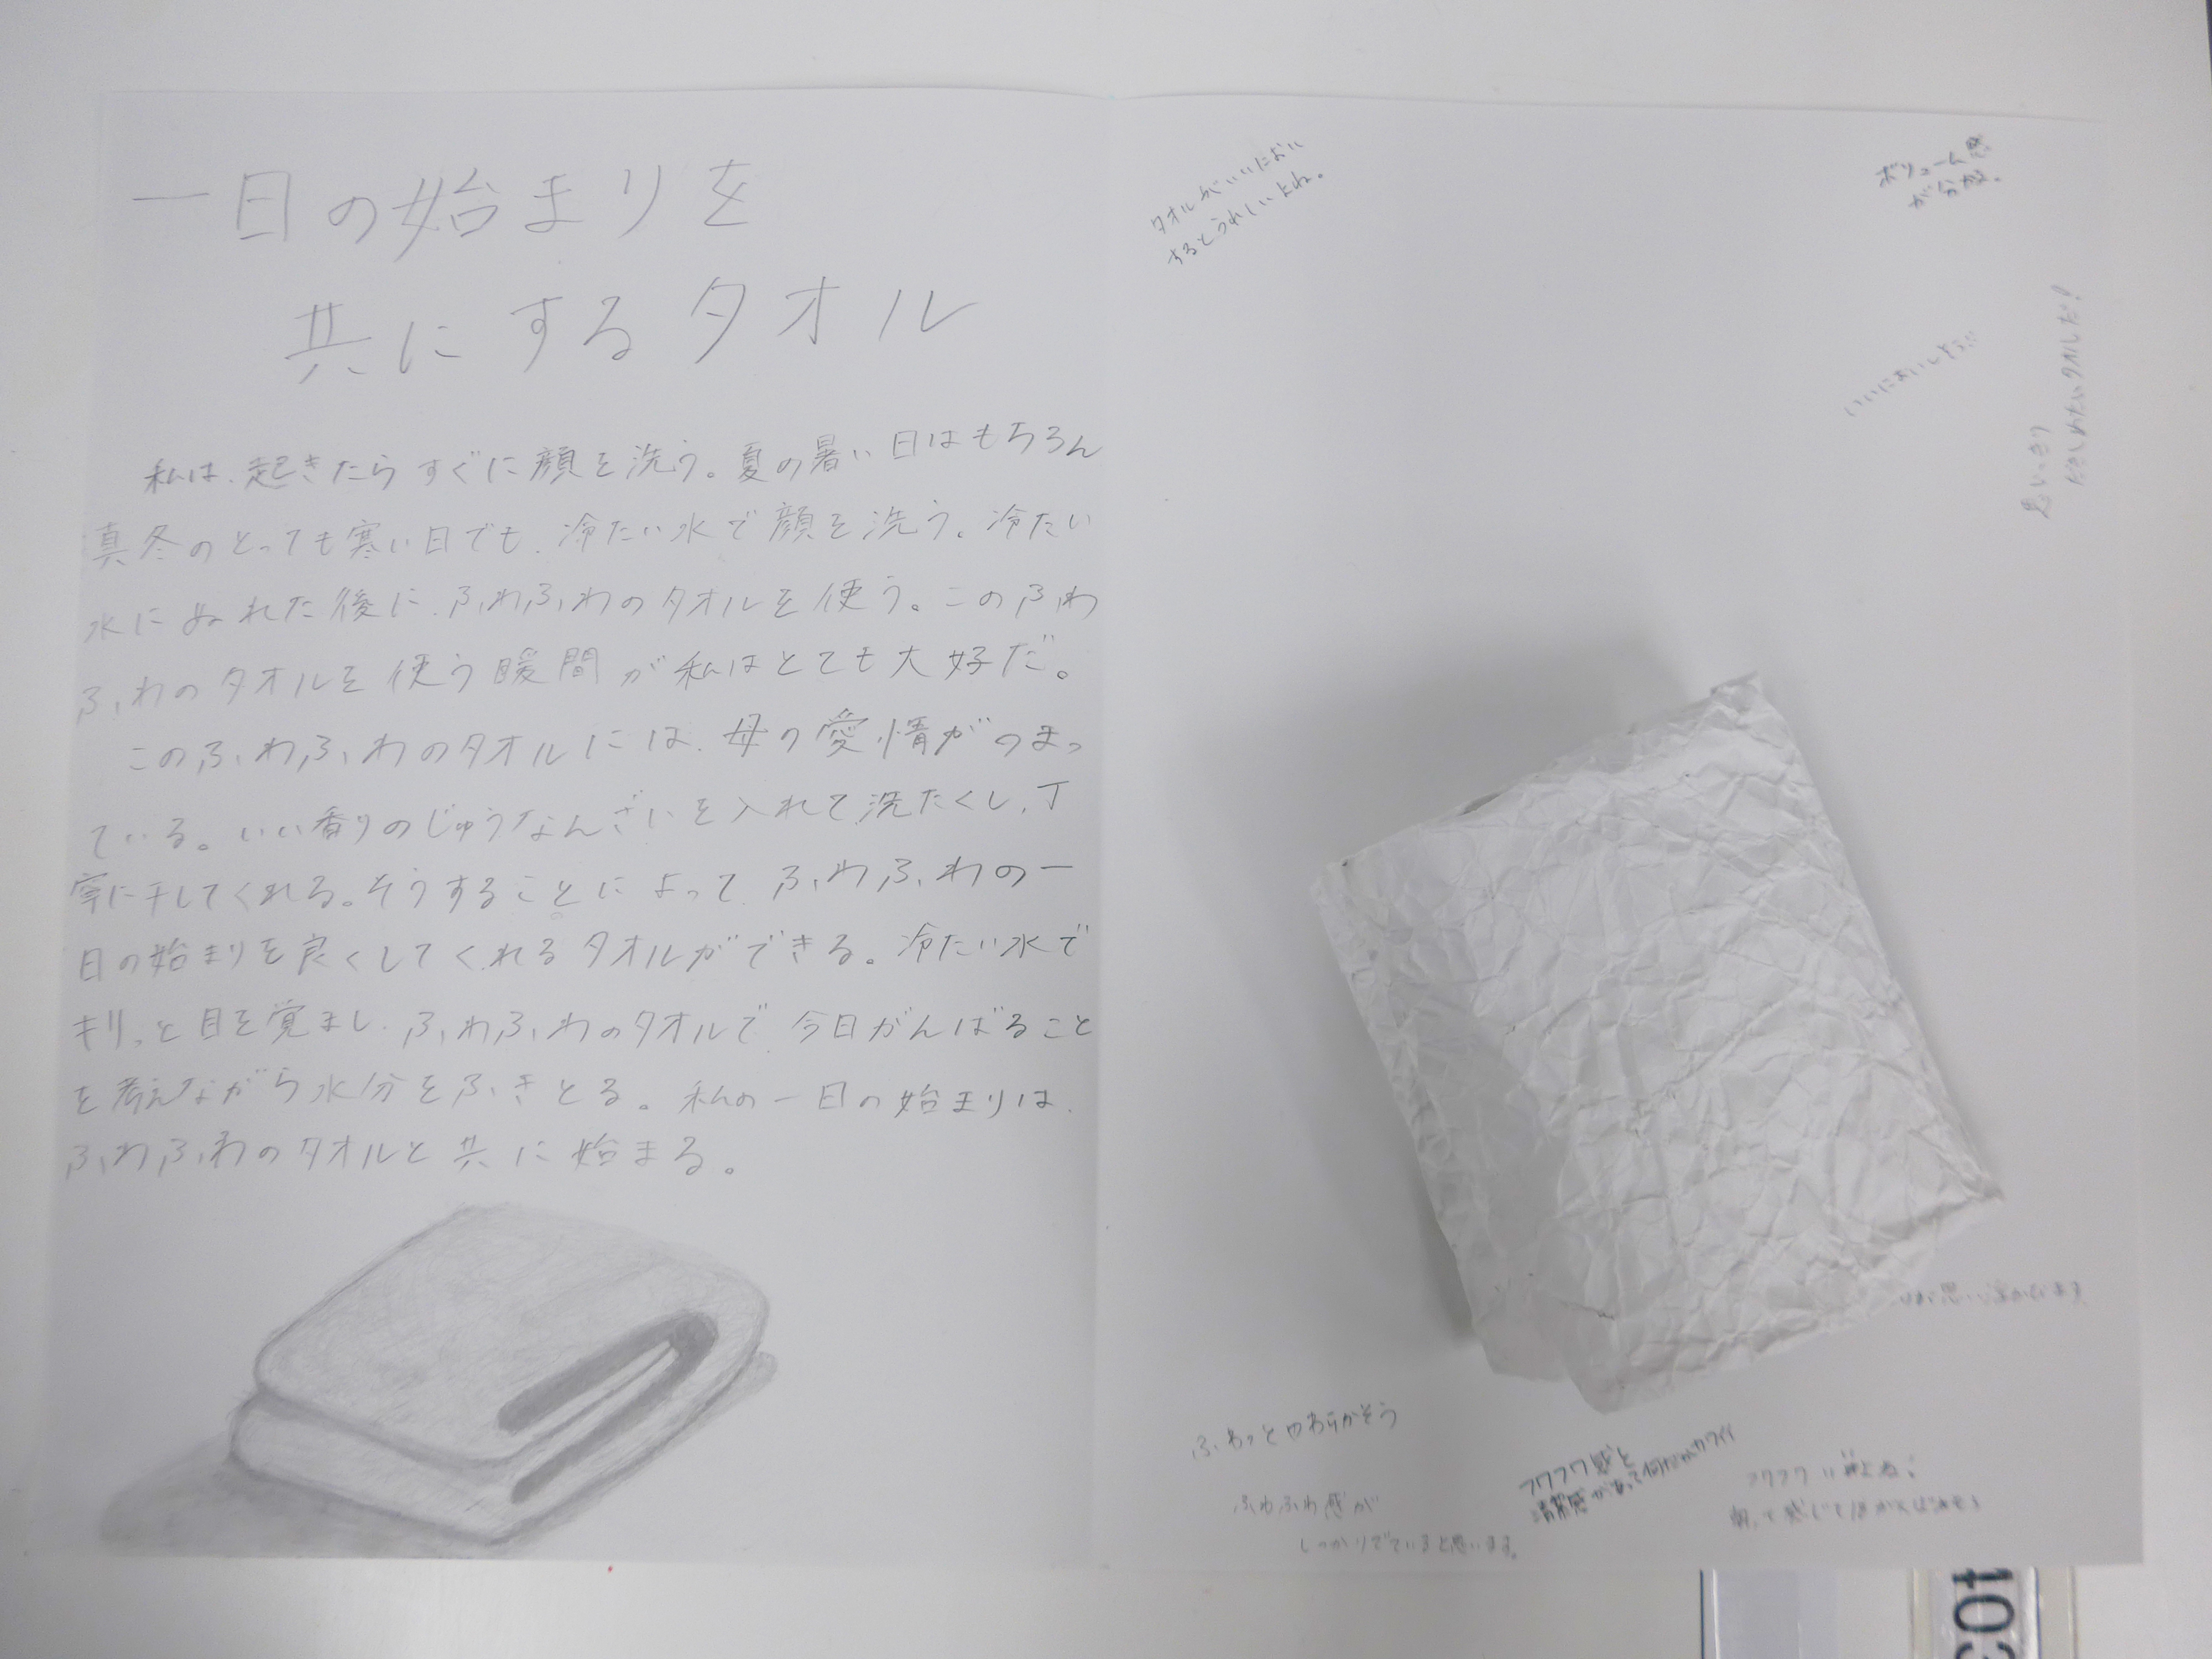 一日の始まりを
共にするタオル
私は、起きたらすぐに顔を洗う。夏の暑い日はもちろん
真冬のとっても寒い日でも、冷たい水で顔を洗う。冷たい
水にぬれた後に、ふわふわのタオルを使う。このふわ
ふわのタオルを使う瞬間が私はとても大好だ。
このふわふわのタオルには、母の愛情がつまっ
ている。いい香りのじゅうなんざいを入れて洗たくし、丁
寧に干してくれる。そうすることによって、ふわふわの一
日の始まりを良くしてくれるタオルができる。冷たい水で
キリッと目を覚まし、ふわふわのタオルで、今日がんばること
を考えながら水分をふきとる。私の一日の始まりは、
ふわふわのタオルと共に始まる。
タオルがいいにおい
するとうれしいよね。
ボリューム感
が分かる。
いいにおいしそう!!
思いっきり
だきしめたいタオルだ!
思い浮かびます
ふわっとやわらかそう
ふわふわ感が
しっかりでていると思います。
フワフワ感と
清潔感があって何だかカワイイ
フワフワ
403